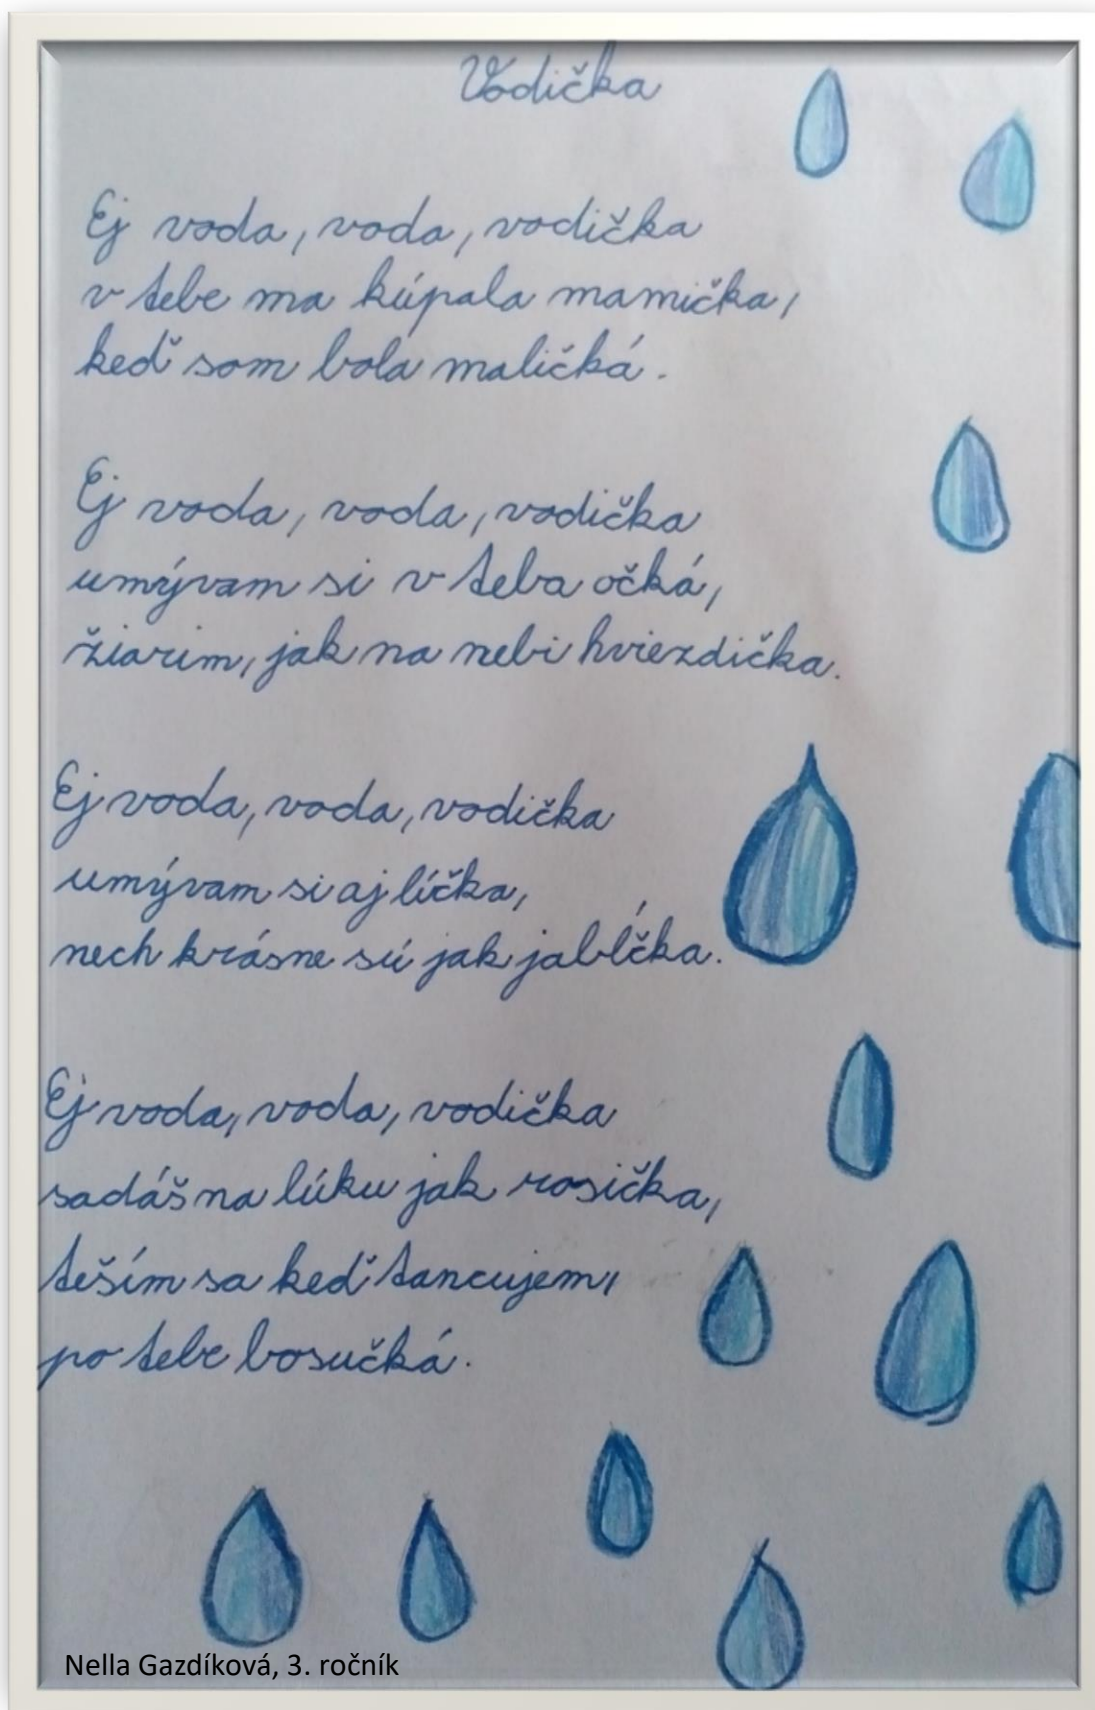 Vodička
Ej voda, voda, vodička
v tebe ma kúpala mamička,
keď som bola maličká.
Ej voda, voda, vodička
umývam si v teba očká,
žiarim, jak na nebi hviezdička.
Ej voda, voda, vodička
umývam si aj líčka,
nech krásne sú jak jabĺčka.
Ej voda, voda, vodička
sadáš na lúku jak rosička,
teším sa keď tancujem,
po tebe bosučká.
Nella Gazdíková, 3. ročník